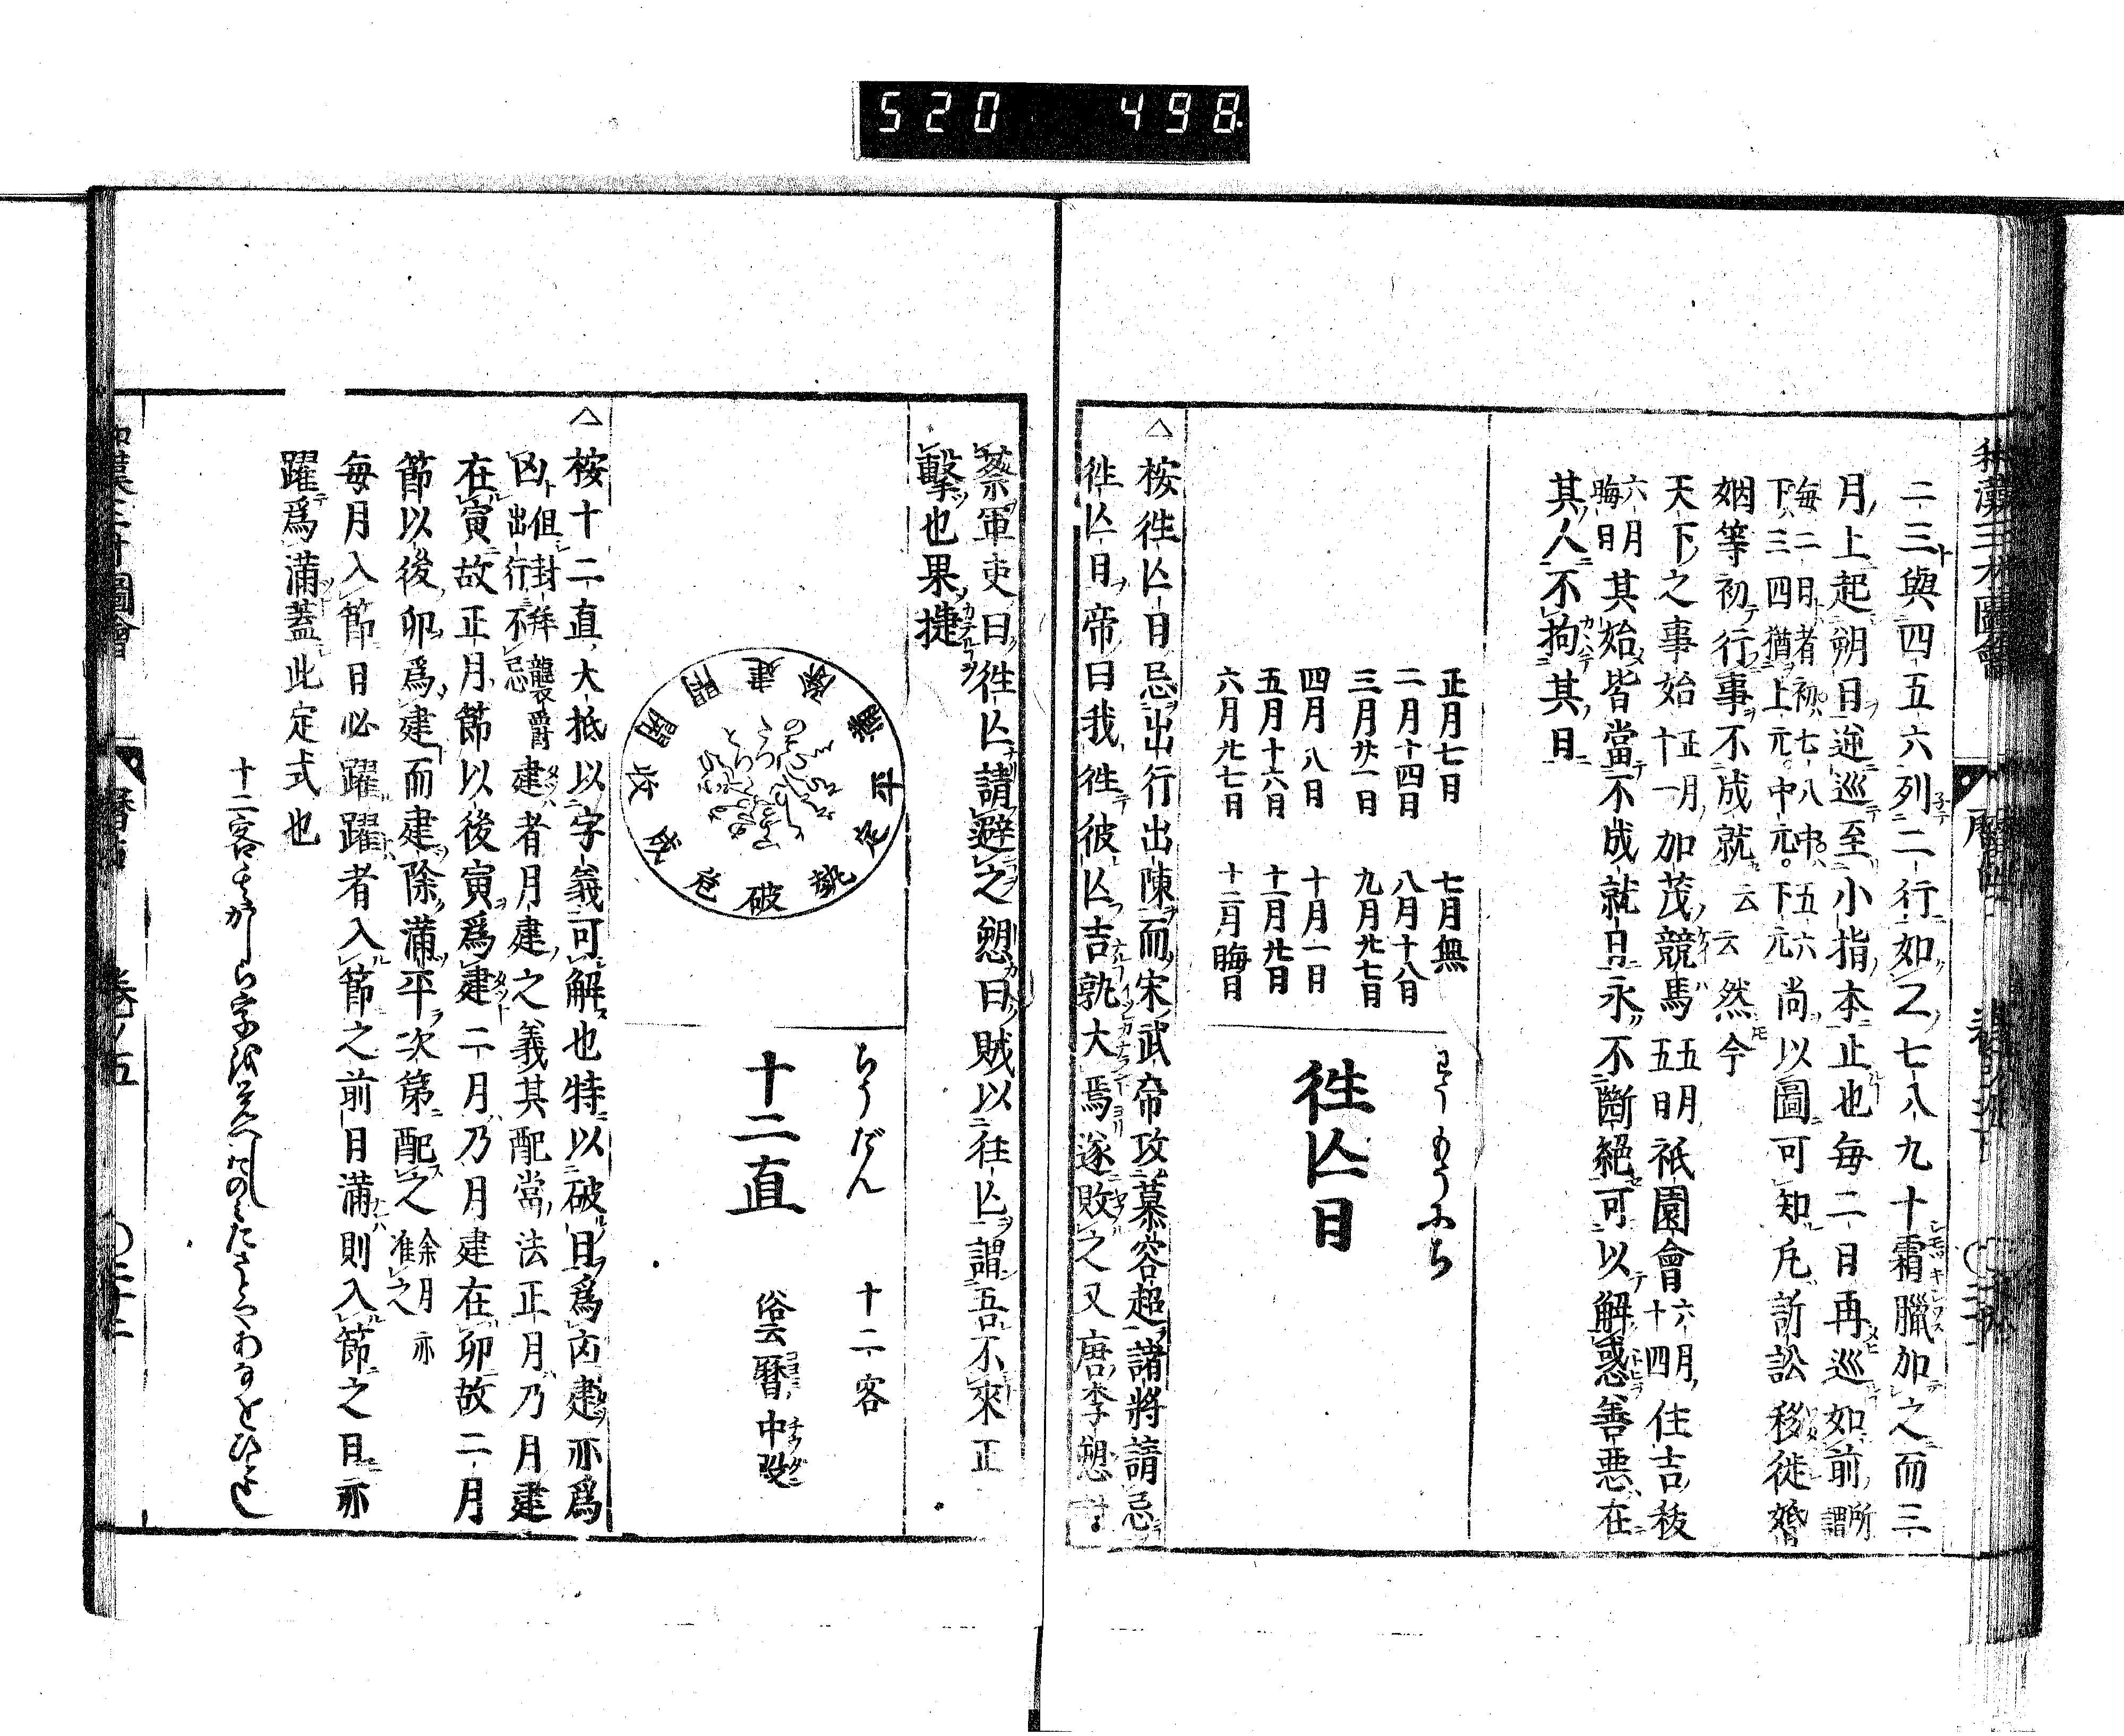 520 498
和漢三才圖會
二三與四五六列二行如又七八九十霜臘加之而三
月上起朔日逆巡至小指本止也每二日再巡如前所謂
每二日者初七八中五六下三四猶上元。中元。下元尚以圖可知凡訴訟移徙婚
姻等初行事不成就云云然今
天下之事始正月十一加茂競馬五月五日祇園會六月十四住吉祓
六月晦日其始皆當不成就日永不斷絕可以解惑善惡在
其人不拘其日
わうもうにち
往亾日
正月七日 七月無
二月十四日 八月十八日
三月廿一日 九月廿七日
四月八日 十月一日
五月十六日 十一月廿日
六月廿七日 十二月晦日
△按往亾日忌出行出陳而宋武帝攻慕容超諸將請忌
往亾日帝曰我往彼亾吉孰大焉遂敗之又唐李愬
蔡軍吏曰往亾請避之愬曰賊以往亾謂吾不來正
擊也果捷
ちうだん
十二直
十二客
俗云暦中段
建
除
滿
平
定
執
破
危
成
收
開
閉
△按十二直大抵以字義可解也特以破日爲凶建亦爲
凶但封拜襲爵出行不忌建者月建之義其配當法正月乃月建
在寅故正月節以後寅爲建二月乃月建在卯故二月
節以後卯爲建而建除滿平次第配之餘月亦准之
每月入節日必躍躍者入節之前日滿則入節之日亦
躍爲滿蓋此定式也
和漢三才圖會 曆占 卷ノ五 〇二十二